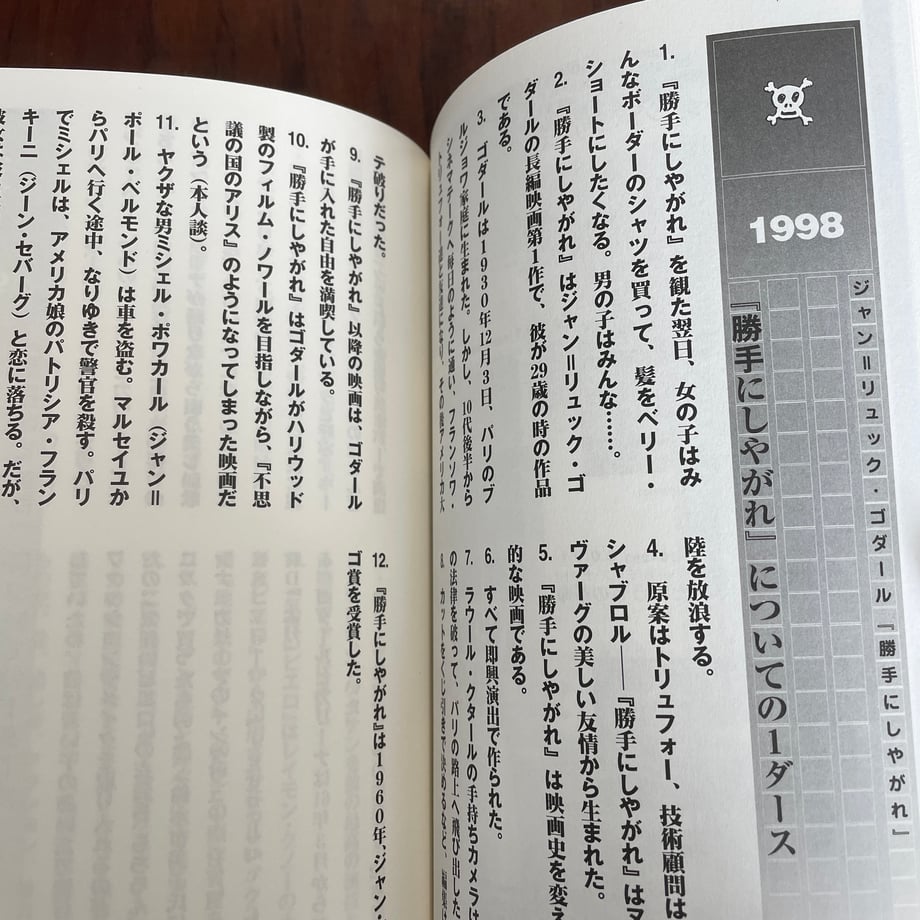 1998
ジャン＝リュック・ゴダール『勝手にしやがれ』
『勝手にしやがれ』についての1ダース
1. 『勝手にしやがれ』を観た翌日、女の子はみ
んなボーダーのシャツを買って、髪をベリー・
ショートにしたくなる。男の子はみんな……。
2. 『勝手にしやがれ』はジャン＝リュック・ゴ
ダールの長編映画第1作で、彼が29歳の時の作品
である。
3. ゴダールは1930年12月3日、パリのブ
ルジョワ家庭に生まれた。しかし、10代後半から
シネマテークへ毎日のように通い、フランソワ・
トリュフォー達と友達になり、その後アメリカ大
陸を放浪する。
4. 原案はトリュフォー、技術顧問は
シャブロル――『勝手にしやがれ』はヌ
ヴァーグの美しい友情から生まれた。
5. 『勝手にしやがれ』は映画史を変え
的な映画である。
6. すべて即興演出で作られた。
7. ラウール・クタールの手持ちカメラは
の法律を破って、パリの路上へ飛び出した
8. カットをくじ引きで決めるなど、編集は
テ破りだった。
9. 『勝手にしやがれ』以降の映画は、ゴダール
が手に入れた自由を満喫している。
10. 『勝手にしやがれ』はゴダールがハリウッド
製のフィルム・ノワールを目指しながら、『不思
議の国のアリス』のようになってしまった映画だ
という（本人談）。
11. ヤクザな男ミシェル・ポワカール（ジャン＝
ポール・ベルモンド）は車を盗む。マルセイユか
らパリへ行く途中、なりゆきで警官を殺す。パリ
でミシェルは、アメリカ娘のパトリシア・フラン
キーニ（ジーン・セバーグ）と恋に落ちる。だが、
12. 『勝手にしやがれ』は1960年、ジャン・
ゴ賞を受賞した。